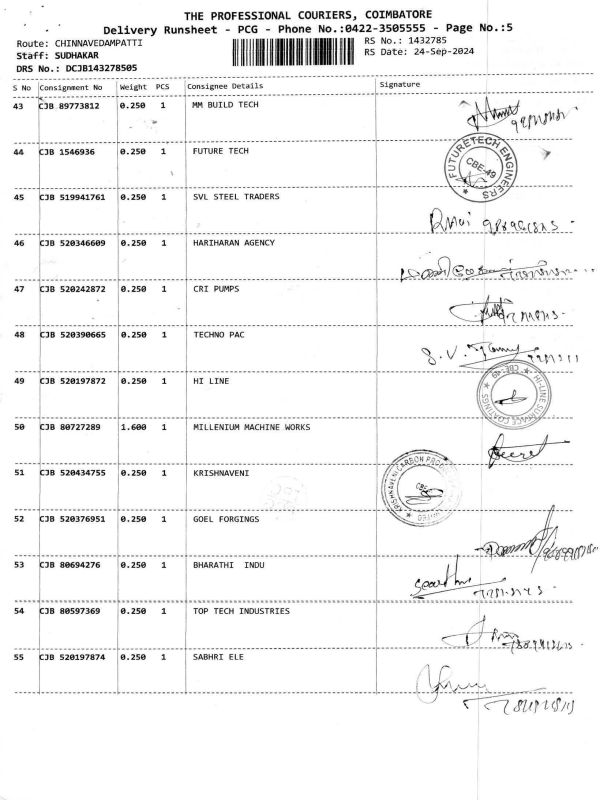 THE PROFESSIONAL COURIERS, COIMBATORE
Delivery Runsheet - PCG - Phone No.:0422-3505555 - Page No.:5
Route: CHINNAVEDAMPATTI RS No.: 1432785
Staff: SUDHAKAR RS Date: 24-Sep-2024
DRS No.: DCJB143278505
S No Consignment No Weight PCS Consignee Details Signature
43 CJB 89773812 0.250 1 MM BUILD TECH
44 CJB 1546936 0.250 1 FUTURE TECH
FUTURETECH ENGINEERS
CBE-49
45 CJB 519941761 0.250 1 SVL STEEL TRADERS
46 CJB 520346609 0.250 1 HARIHARAN AGENCY
47 CJB 520242872 0.250 1 CRI PUMPS
48 CJB 520390665 0.250 1 TECHNO PAC
49 CJB 520197872 0.250 1 HI LINE
HI-LINE SURFACE COATINGS
CBE-49
50 CJB 80727289 1.600 1 MILLENIUM MACHINE WORKS
51 CJB 520434755 0.250 1 KRISHNAVENI
KRISHNAVENI CARBON
52 CJB 520376951 0.250 1 GOEL FORGINGS
53 CJB 80694276 0.250 1 BHARATHI INDU
54 CJB 80597369 0.250 1 TOP TECH INDUSTRIES
55 CJB 520197874 0.250 1 SABHRI ELE